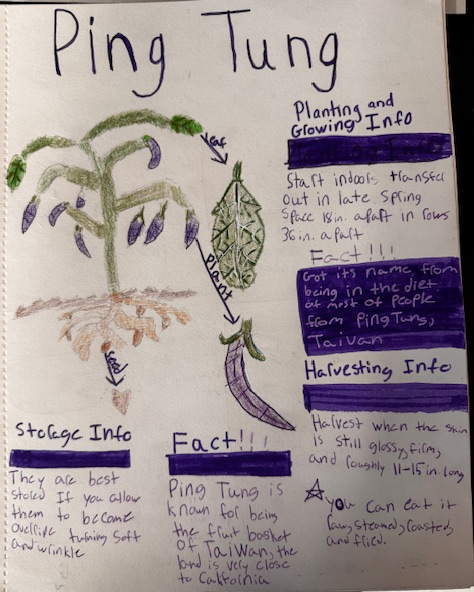 Ping Tung
Planting and
Growing Info
Start indoors transfer
out in late spring
Space 18in. apart in rows
36 in. apart
Fact!!!
Got its name from
being in the diet
of most of people
from Ping Tung,
Taiwan
Harvesting Info
Harvest when the skin
is still glossy, firm,
and roughly 11-15 in. long
you can eat it
raw, steamed, roasted,
and fried.
leaf
Plant
seed
Storage Info
They are best
stored If you allow
them to become
overripe turning soft
and wrinkle
Fact!!!
Ping Tung is
known for being
the fruit basket
of Taiwan, the
land is very close
to California